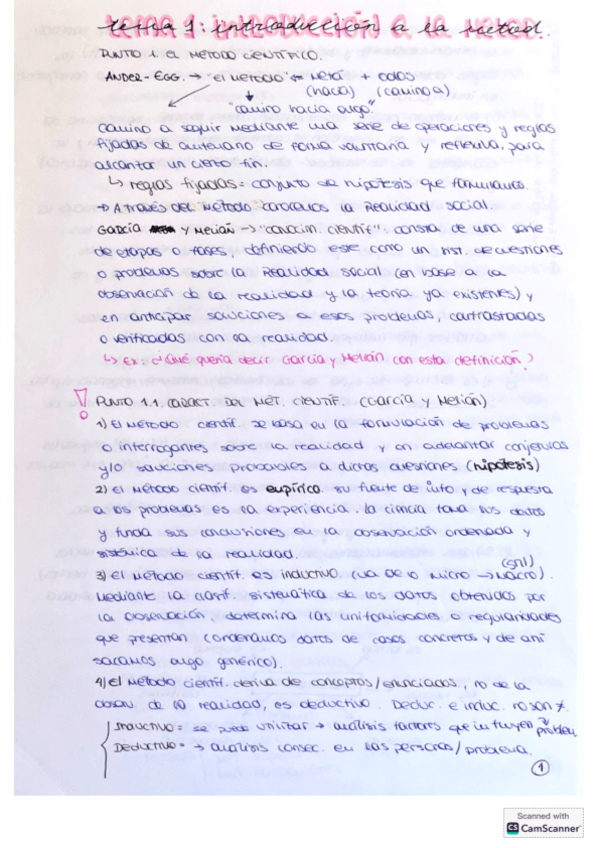 tema 1: introducción a la metod.
PUNTO 1. EL METODO CIENTÍFICO.
ANDER-EGG. → "el metodo" ← Metá + odos
(hacia) (camino a)
"camino hacia algo."
Camino a seguir mediante una serie de operaciones y reglas
fijadas de antemano de forma voluntaria y reflexiva, para
alcanzar un cierto fin.
↳ reglas fijadas = conjunto de hipótesis que formulamos.
→ A través del método conocemos la Realidad social.
García y Merián → "conocim. científ": consta de una serie
de etapas o fases, definiendo este como un inst. de cuestiones
o problemas sobre la Realidad social (en base a la
observación de la realidad y la teoría ya existentes) y
en anticipar soluciones a esos problemas, contrastadas
o verificadas con la realidad.
↳ Ex: ¿Qué quería decir García y Merián con esta definición?
! PUNTO 1.1. CARACT. DEL MÉT. CIENTÍF. (García y Merián)
1) El método científ. se basa en la formulación de problemas
o interrogantes sobre la realidad y en adelantar conjeturas
y/o soluciones probables a dichas cuestiones (hipótesis)
2) El método científ. es empírico. su fuente de info y de respuesta
a los problemas es la experiencia. la ciencia toma sus datos
y funda sus conclusiones en la observación ordenada y
sistémica de la realidad.
(gnl)
3) El método científ. es inductivo. (va de lo micro → macro).
Mediante la clasif. sistemática de los datos obtenidos por
la observación, determina las uniformidades o regularidades
que presentan (ordenamos datos de casos concretos y de ahí
sacamos algo genérico).
4) El método científ. deriva de conceptos/enunciados, no de la
observ. de la realidad, es deductivo. Deduc. e induc. no son ≠.
Inductivo = se puede utilizar → análisis factores que influyen problem.
Deductivo = → análisis consec. en las personas/problema.
1
Scanned with
CS CamScanner